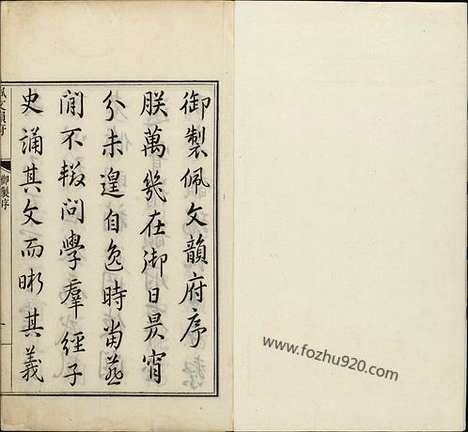 御製佩文韻府序
朕萬幾在御日昃宵
分未遑自逸時當燕
閒不輟問學羣經子
史誦其文而晰其義
佩文韻府
御製序
www.fozhu920.com